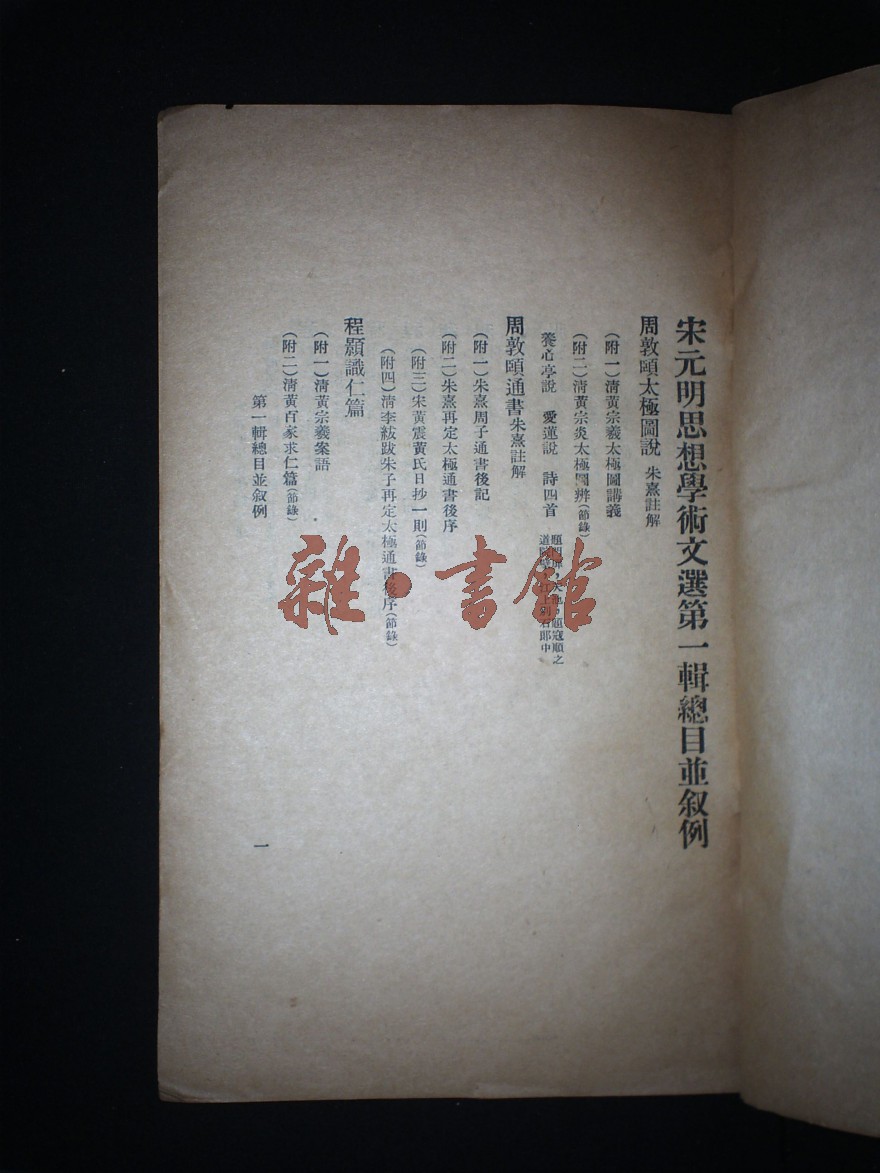 宋元明思想學術文選第一輯總目並叙例
周敦頤太極圖說 朱熹註解
(附一)清黃宗羲太極圖講義
(附二)清黃宗炎太極圖辨(節錄)
養心亭說 愛蓮說 詩四首
題寇順之
道 石郎中
周敦頤通書 朱熹註解
(附一)朱熹周子通書後記
(附二)朱熹再定太極通書後序
(附三)宋黃震黃氏日抄一則(節錄)
(附四)清李紱跋朱子再定太極通書後序(節錄)
程顥識仁篇
(附一)清黃宗羲案語
(附二)清黃百家求仁篇(節錄)
第一輯總目並叙例
一
雜·書館